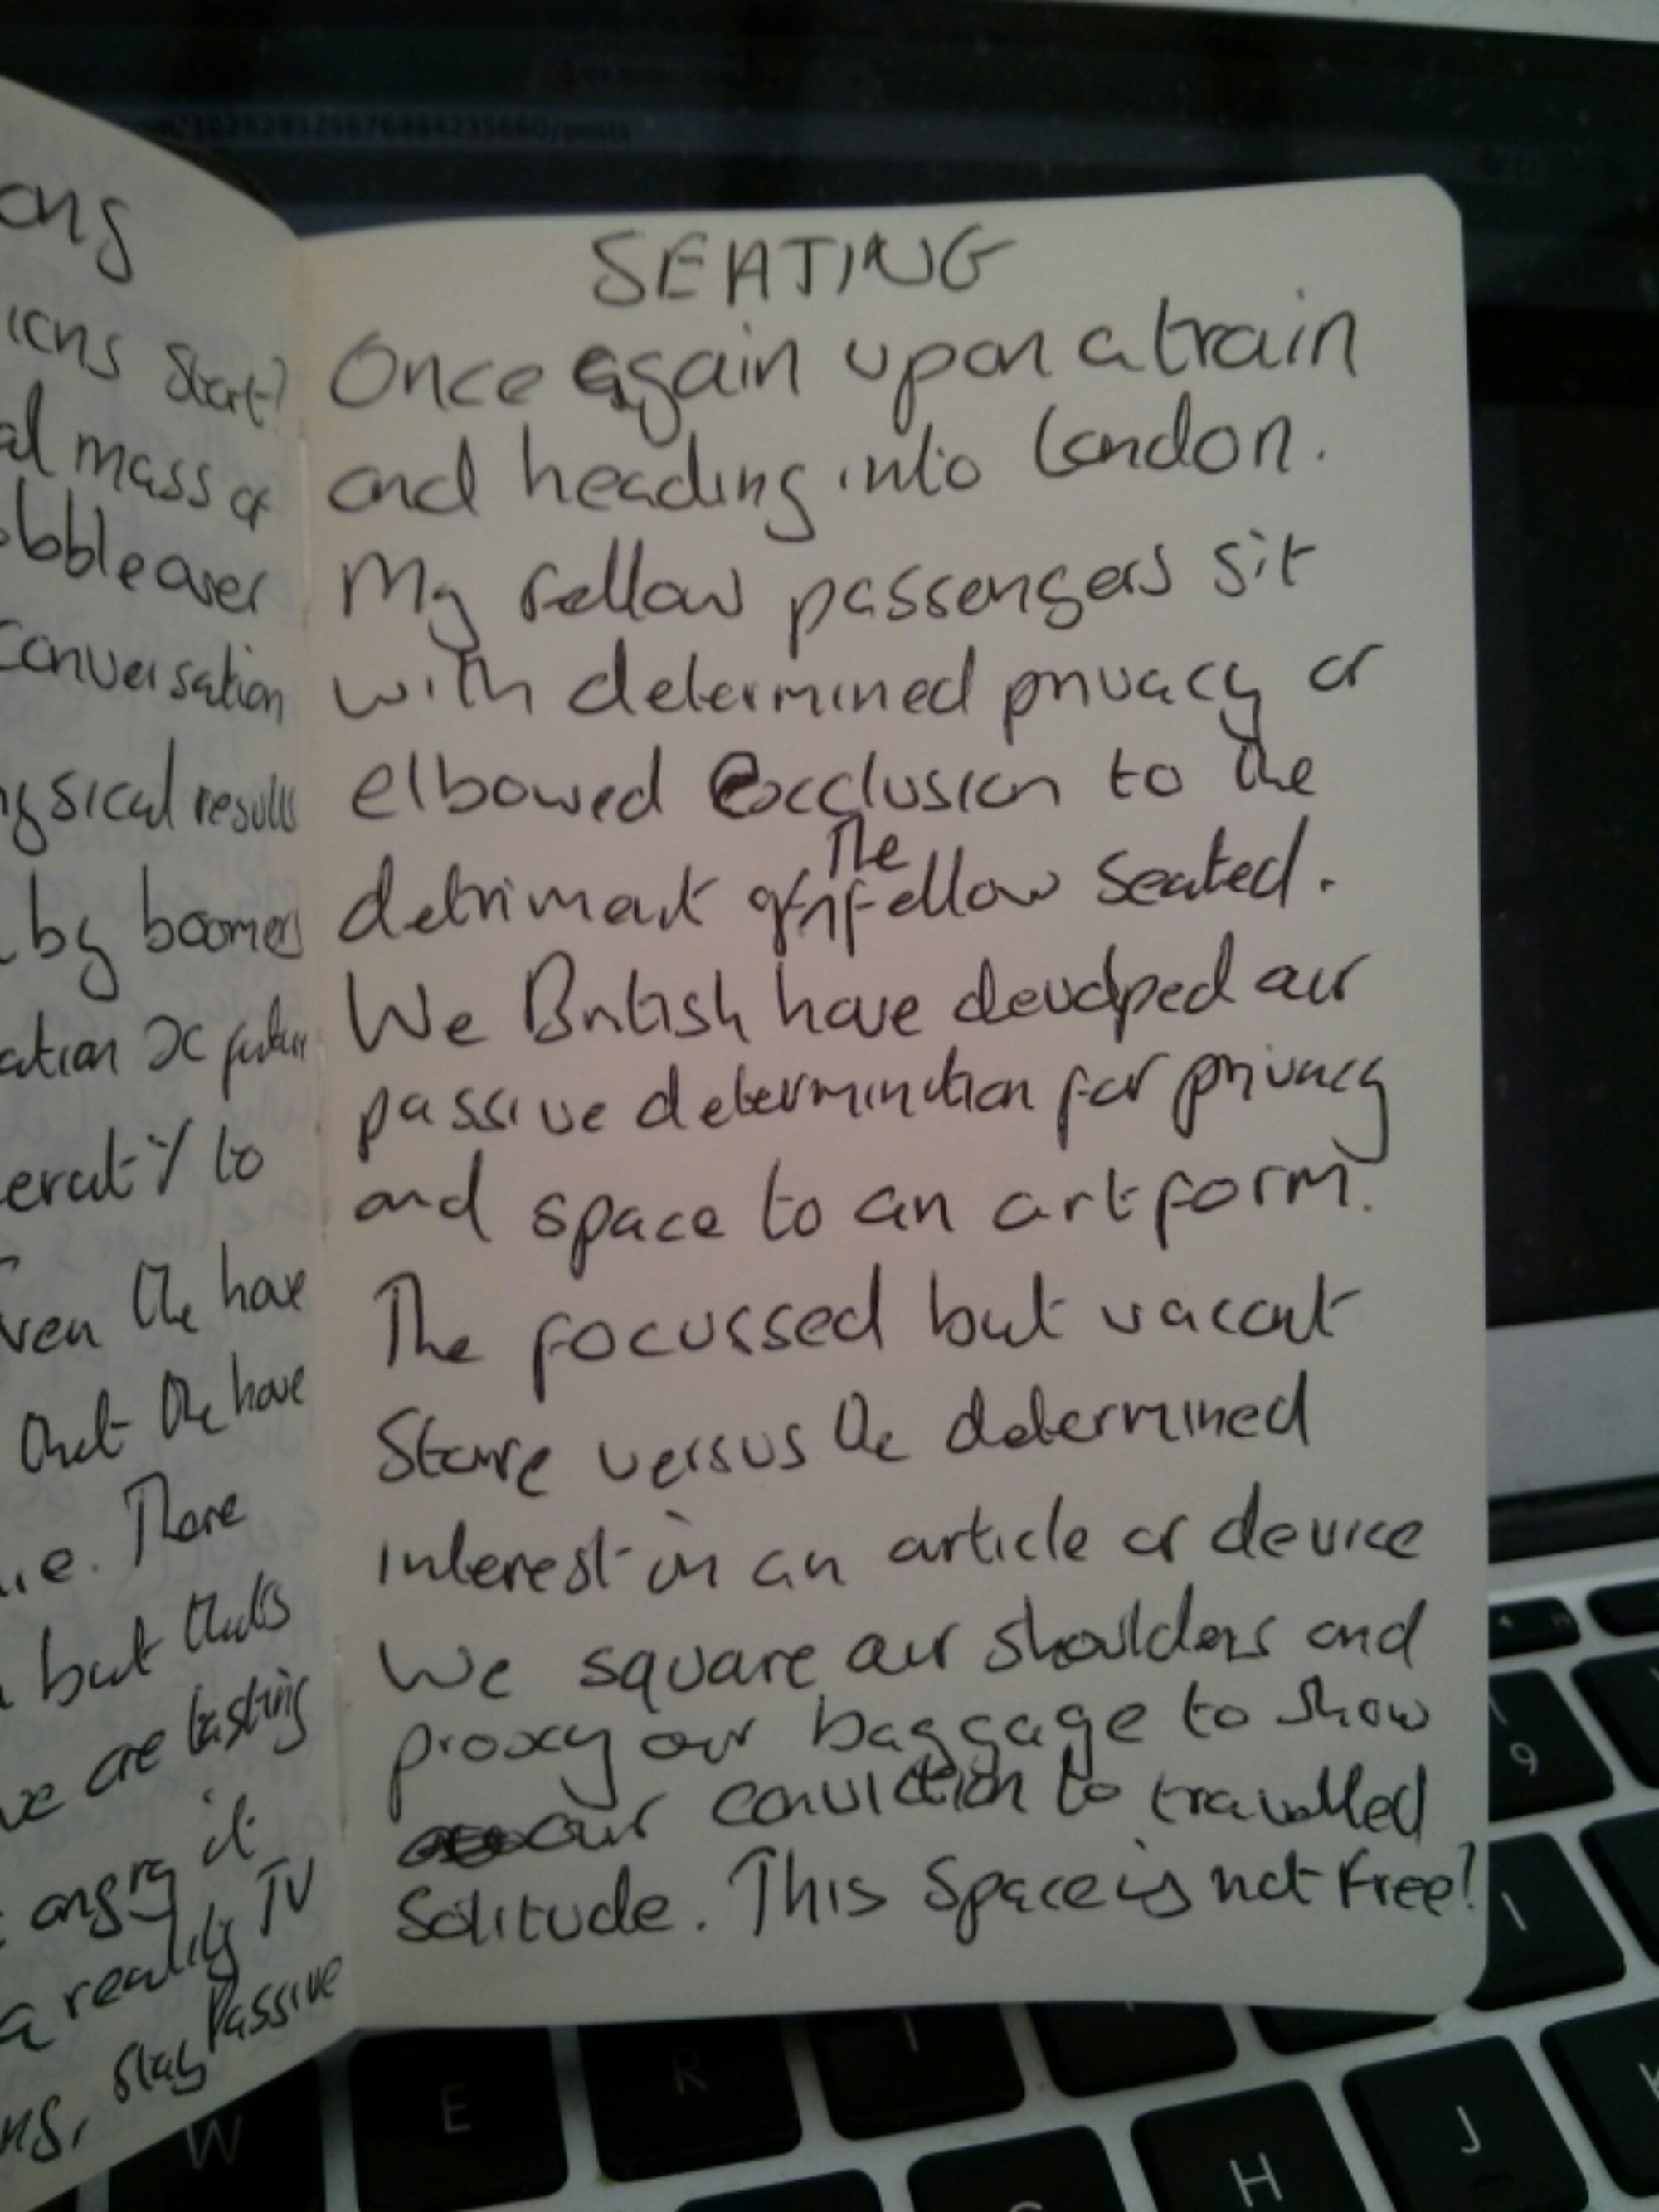 ong
start?
mass of
over
conversation
results
by boomers
to
the have
that the have
There
but thats
are lasting
angry it
a reality TV
stay Passive
SEATING
Once again upon a train
and heading into London.
My fellow passengers sit
with determined privacy or
elbowed exclusion to the
detriment of the fellow seated.
We British have developed our
passive determination for privacy
and space to an art form.
The focussed but vacant
stare versus the determined
interest in an article or device
We square our shoulders and
proxy our baggage to show
our conviction to travelled
Solitude. This Space is not Free!
9
I
W
E
R
H
J